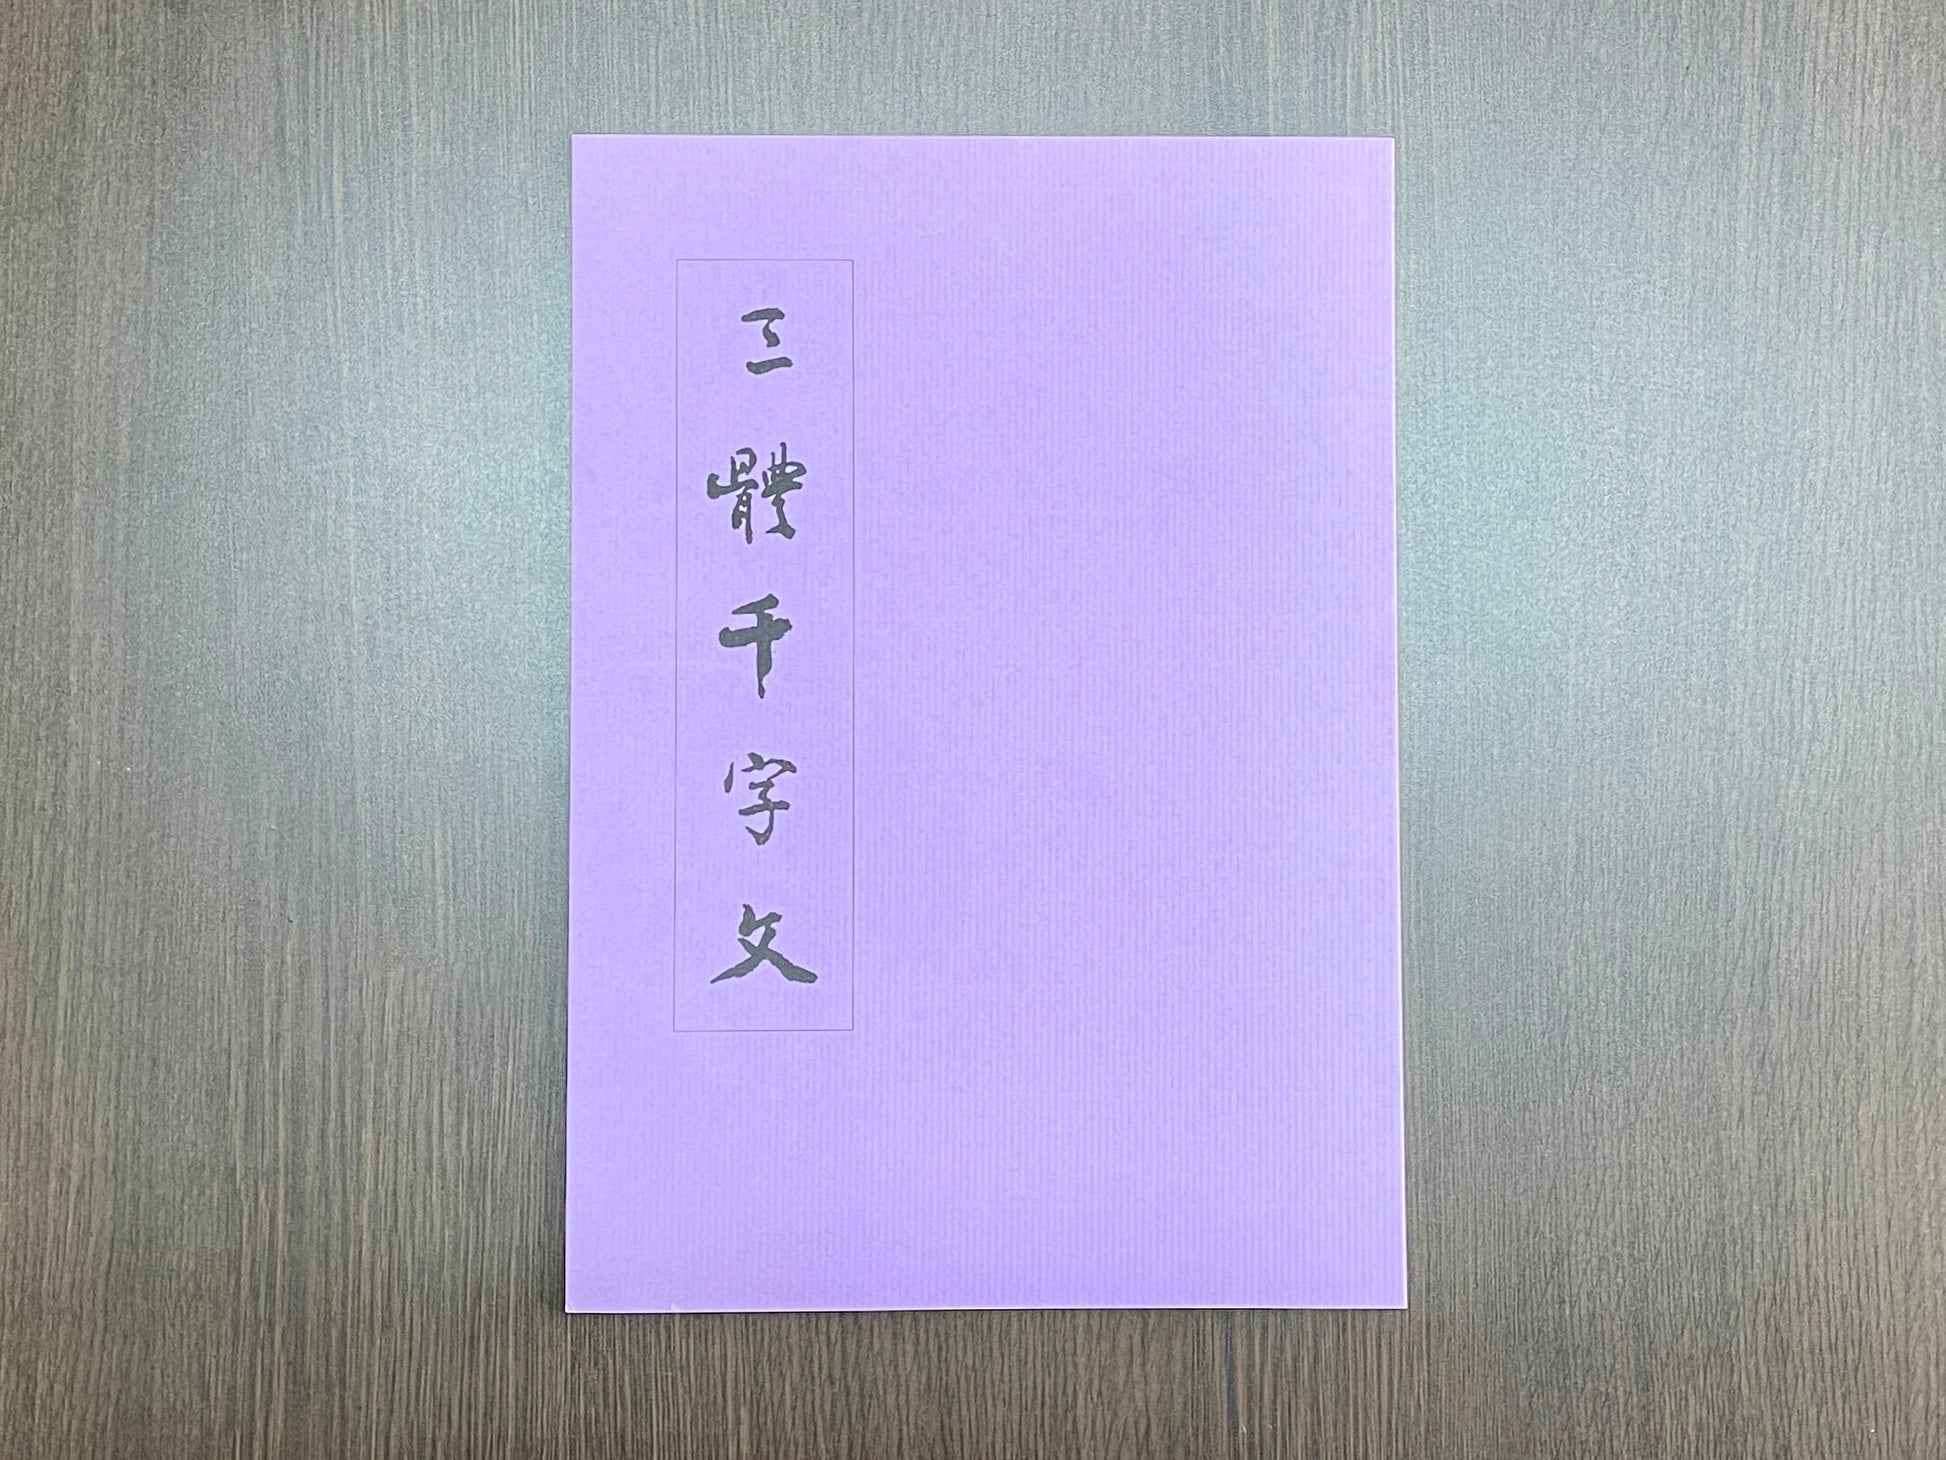 三體千字文